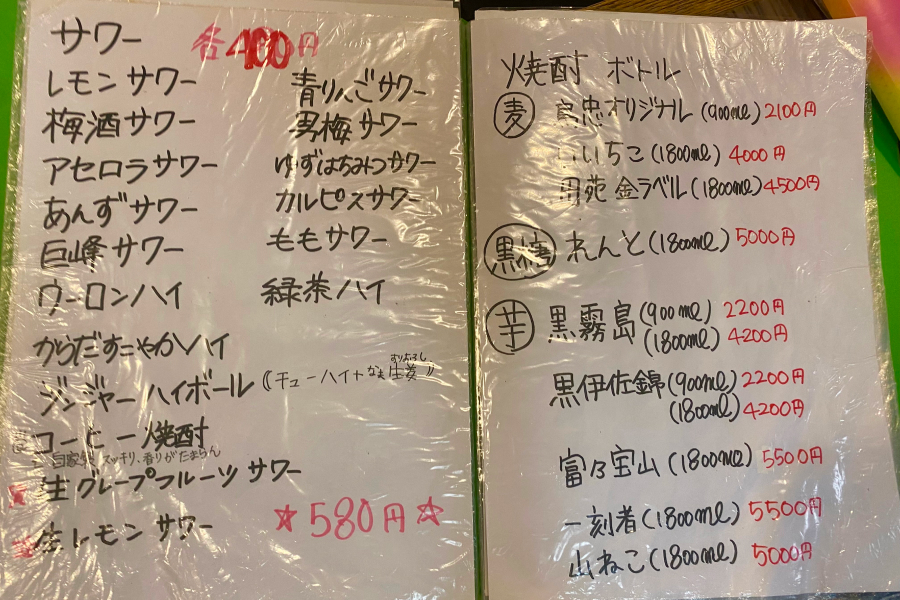 サワー 各400円
レモンサワー 青りんごサワー
梅酒サワー 男梅サワー
アセロラサワー ゆずはちみつサワー
あんずサワー カルピスサワー
巨峰サワー ももサワー
ウーロンハイ 緑茶ハイ
からだすこやかハイ
ジンジャーハイボール (チューハイ+なま生姜
すりおろし
コーヒー焼酎
自家製 スッキリ、香りがたまらん
生グレープフルーツサワー
生レモンサワー
☆580円☆
焼酎 ボトル
麦 鳥忠オリジナル(900ml) 2100円
いいちこ(1800ml) 4000円
金ラベル(1800ml) 4500円
黒糖 れんと(1800ml) 5000円
芋 黒霧島(900ml) 2200円
(1800ml) 4200円
黒伊佐錦(900ml) 2200円
(1800ml) 4200円
富乃宝山(1800ml) 5500円
一刻者(1800ml) 5500円
山ねこ(1800ml) 5000円